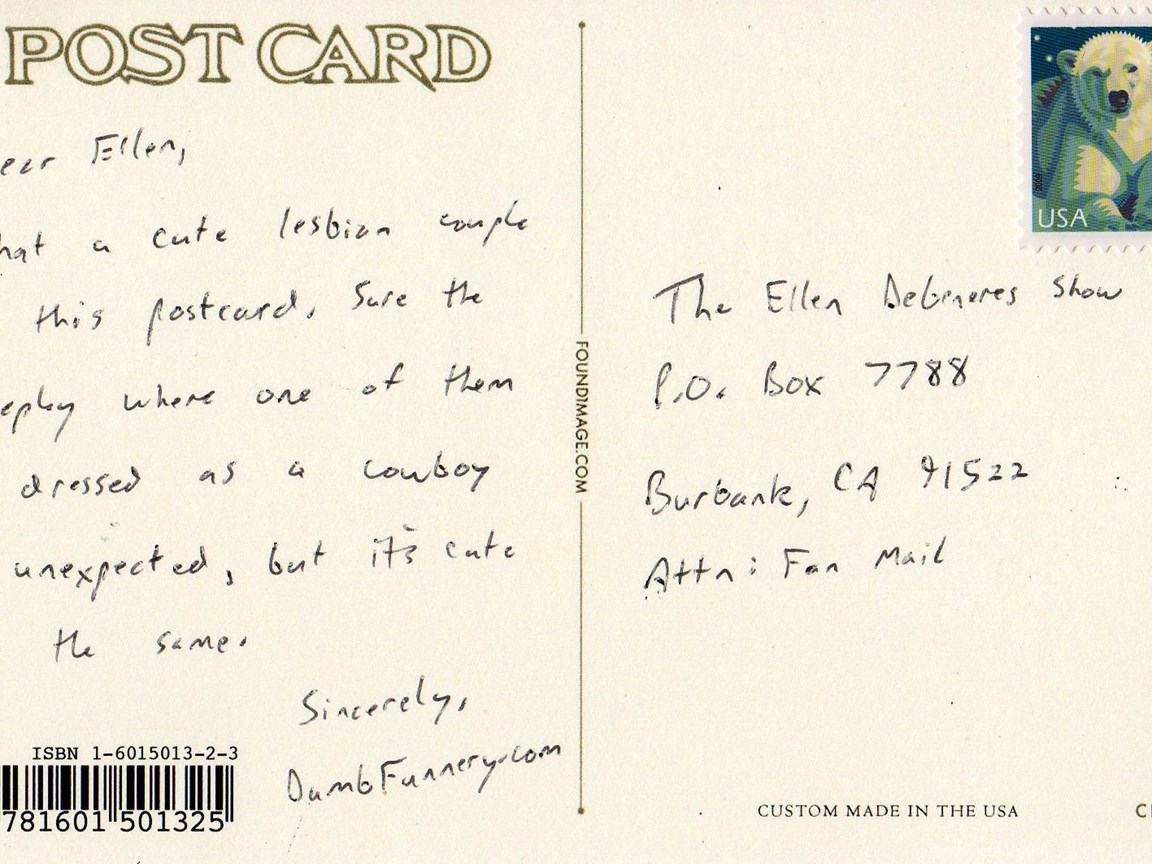 POST CARD
ear Ellen,
hat a cute lesbian couple
this postcard. Sure the
eplay where one of them
dressed as a cowboy
unexpected, but it's cute
the same.
Sincerely,
DumbFunnery.com
ISBN 1-6015013-2-3
781601 501325
FOUNDIMAGE.COM
2009
USA
The Ellen Degeneres Show
P.O. Box 7788
Burbank, CA 91522
Attn: Fan Mail
CUSTOM MADE IN THE USA